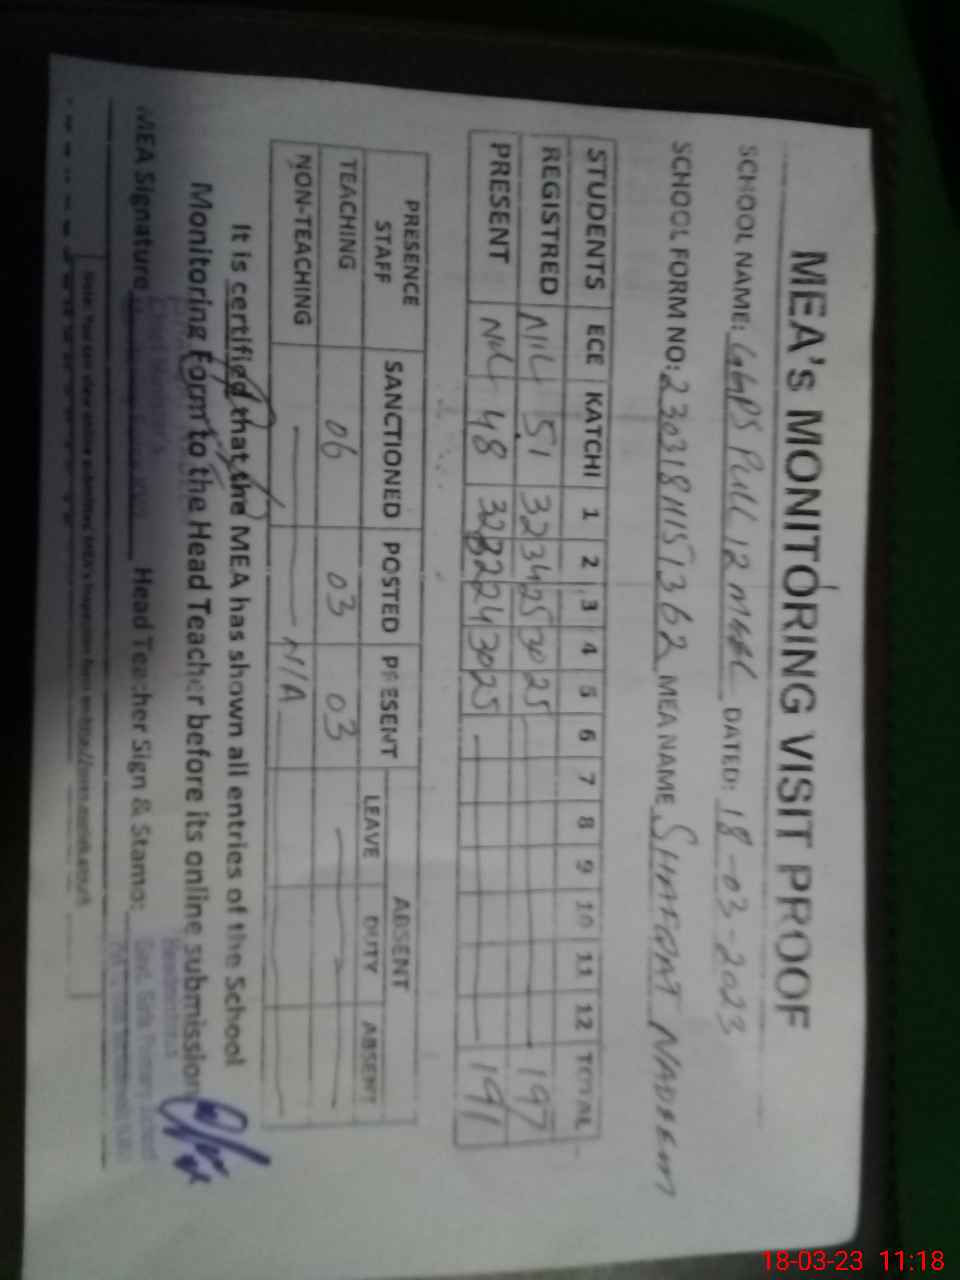 MEA's MONITORING VISIT PROOF
SCHOOL NAME: GGPS PULL 12 DATED: 18-03-2023
SCHOOL FORM NO: MEA NAME NADEEM
STUDENTS ECE KATCHI 1 2 3 4 5 6 7 8 9 10 11 12 TOTAL
REGISTRED NIL 51 32 34 25 30 25 197
PRESENT NIL 48 32 32 24 30 25 191
PRESENCE STAFF SANCTIONED POSTED PRESENT ABSENT
LEAVE DUTY ABSENT
TEACHING 06 03 03
NON-TEACHING N/A
It is certified that the MEA has shown all entries of the School
Monitoring Form to the Head Teacher before its online submission
MEA Signature Head Teacher Sign & Stamp:
Headmistress
Govt. Girls Primary School
18-03-23 11:18